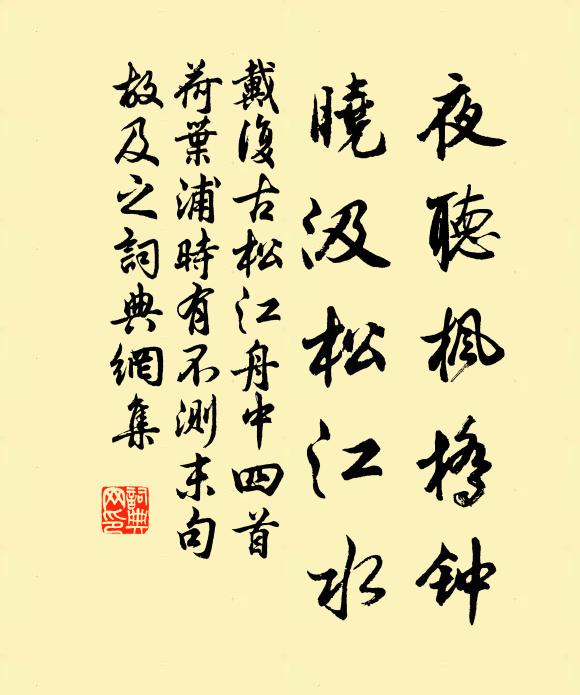 夜聽楓橋钟
曉汲松江水
戴復古松江舟中四首
荷葉浦時有不測末句
故及之詞典網集
詞典网印